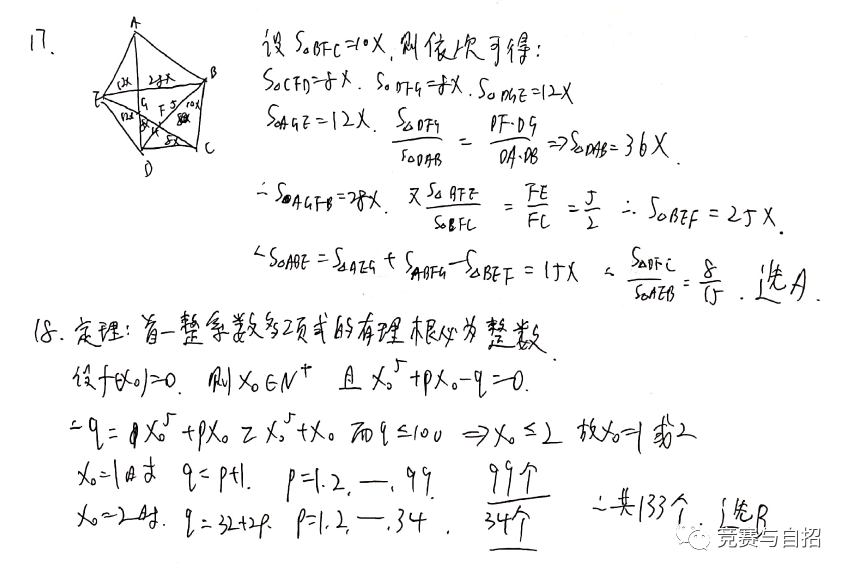 17.
A
B
E
G
F
D
C
12x
28x
5
10x
12x
8x
4
8x
设 S△BFC=10x, 则依次可得:
S△CFD=8x. S△DFG=8x. S△DGE=12x
S△AGE=12x. S△DFG/S△DAB = DF·DG/DA·DB ⇒ S△DAB=36x.
∴ S□AGFB=28x. 又 S△BFE/S△BFC = FE/FC = 5/2 ∴ S△BEF=25x.
∴ S△ABE=S△AEG+SABFG−S△BEF=15x ∴ S△DFC/S△AEB = 8/15. 选A.
18. 定理: 首一整系数多项式的有理根必为整数.
设f(x₀)=0. 则x₀∈N⁺ 且 x₀⁵+px₀-q=0.
∴ q= x₀⁵+px₀ ≥ x₀⁵+x₀ 而q≤100 ⇒ x₀≤2 故x₀=1或2
x₀=1时 q=p+1. p=1.2.—.99 99个
x₀=2时. q=32+2p. p=1.2.—.34. 34个
∴共133个. 选B
竞赛与自招